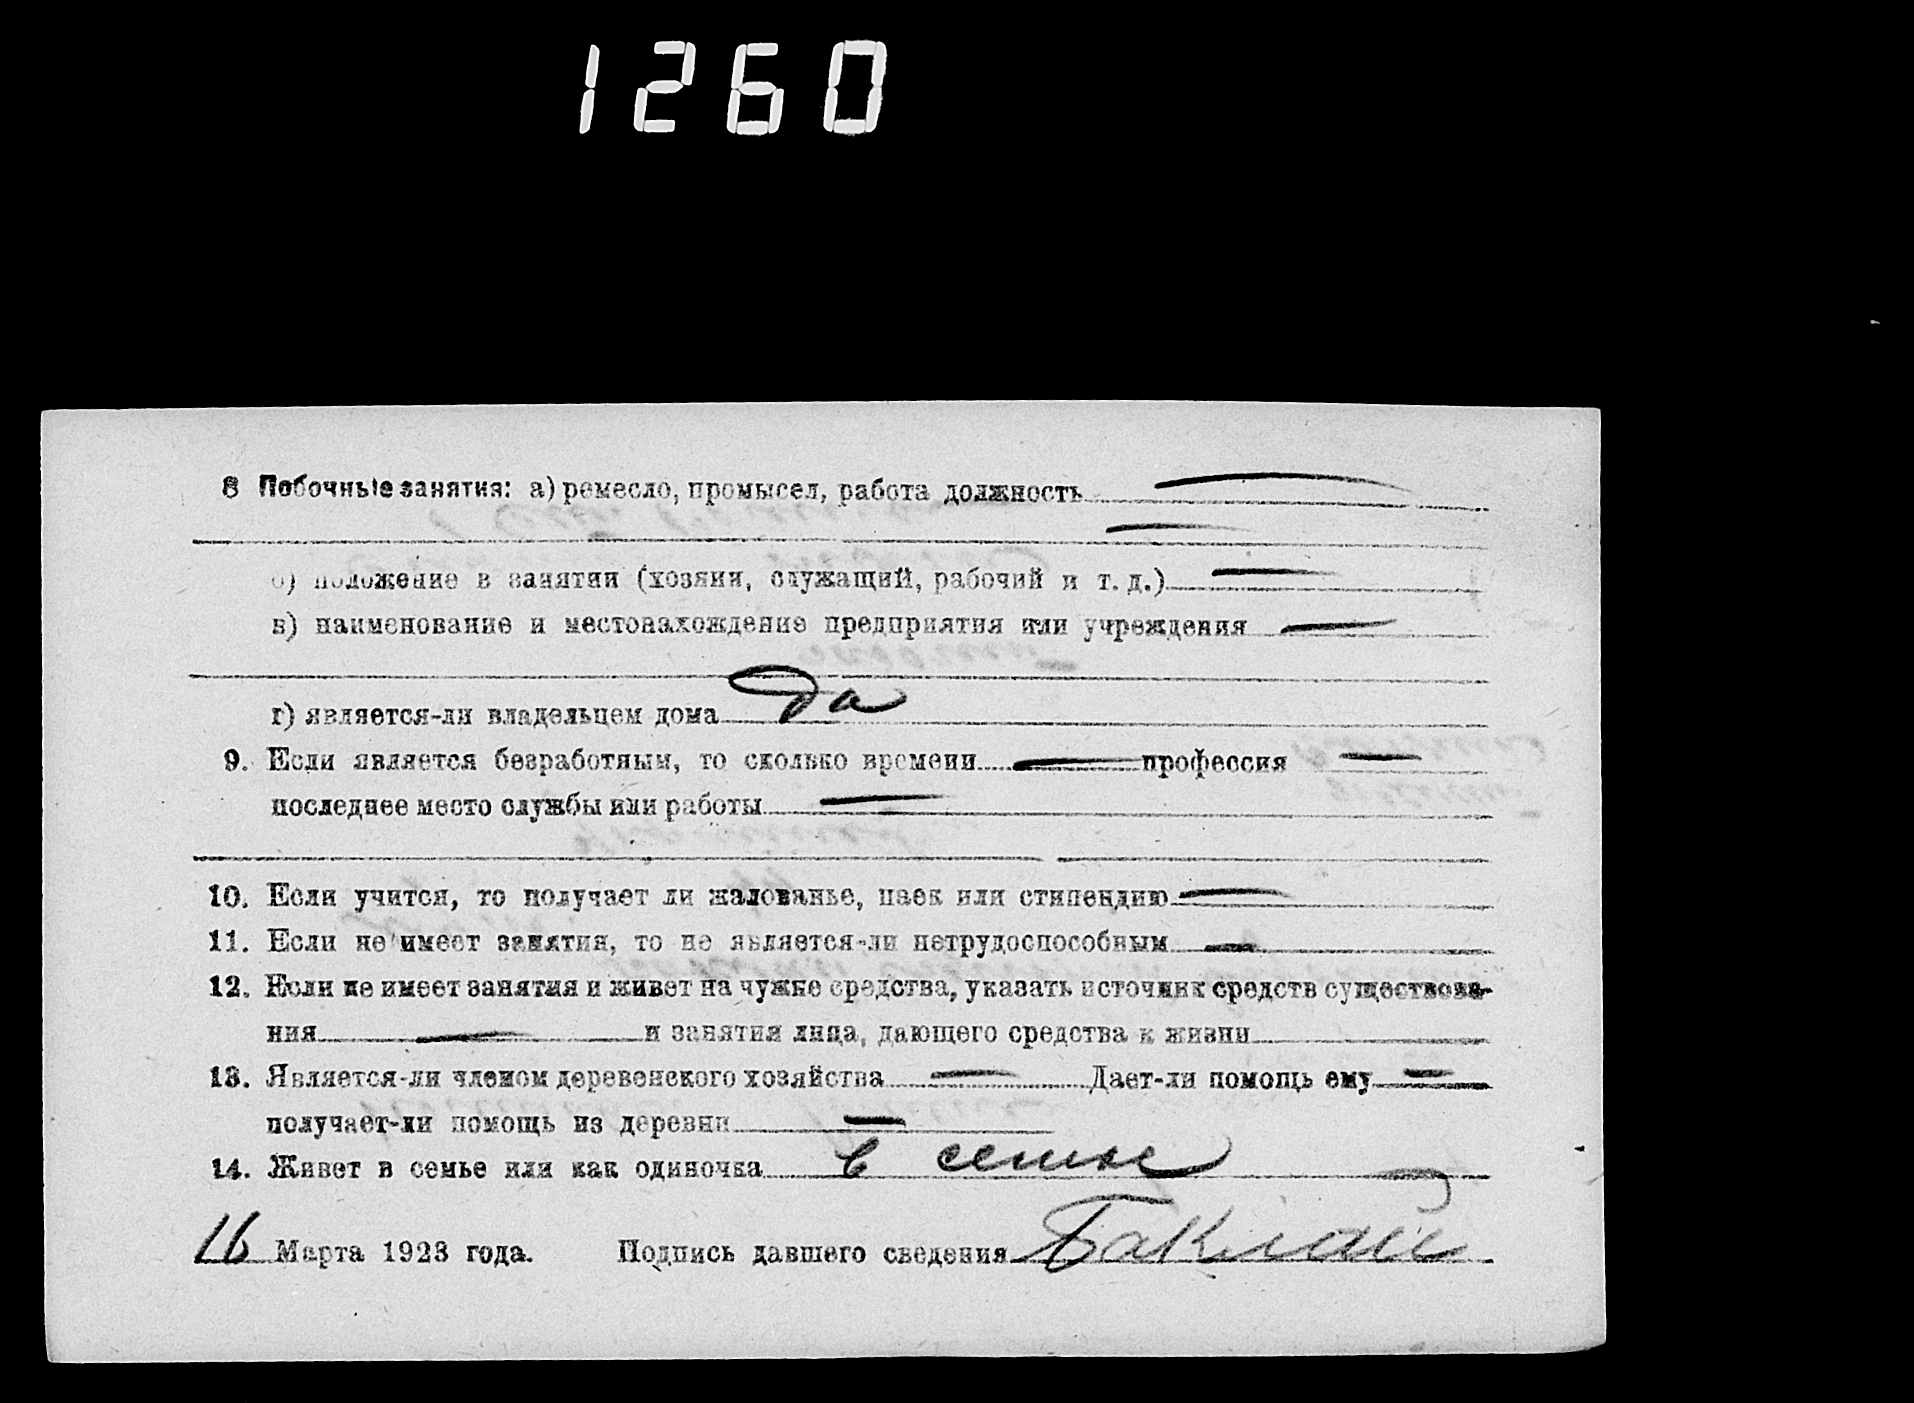 1260
8 Побочные занятия: а) ремесло, промысел, работа должность —
—
б) положение в занятии (хозяин, служащий, рабочий и т. д.) —
в) наименование и местонахождение предприятия или учреждения —
г) является-ли владельцем дома Да
9. Если является безработным, то сколько времени — профессия —
последнее место службы или работы —
10. Если учится, то получает ли жалованье, паек или стипендию —
11. Если не имеет занятия, то не является-ли нетрудоспособным —
12. Если не имеет занятия и живет на чужие средства, указать источник средств существова-
ния — и занятия лица, дающего средства к жизни
13. Является-ли членом деревенского хозяйства — Дает-ли помощь ему —
получает-ли помощь из деревни —
14. Живет в семье или как одиночка в семье
16 Марта 1923 года. Подпись давшего сведения